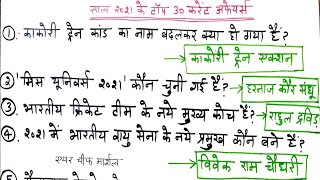 साल २०२१ के टॉप 30 करेंट अफेयर्स
① काकोरी ट्रेन कांड का नाम बदलकर क्या हो गया है?
काकोरी ट्रेन एक्शन
② 'मिस यूनिवर्स २०२१' कौन चुनी गई हैं?
हरनाज कौर संधू
③ भारतीय क्रिकेट टीम के नये मुख्य कोच हैं?
राहुल द्रविड़
④ २०२१ में भारतीय वायु सेना के नये प्रमुख कौन बने हैं?
एयर चीफ मार्शल
विवेक राम चौधरी